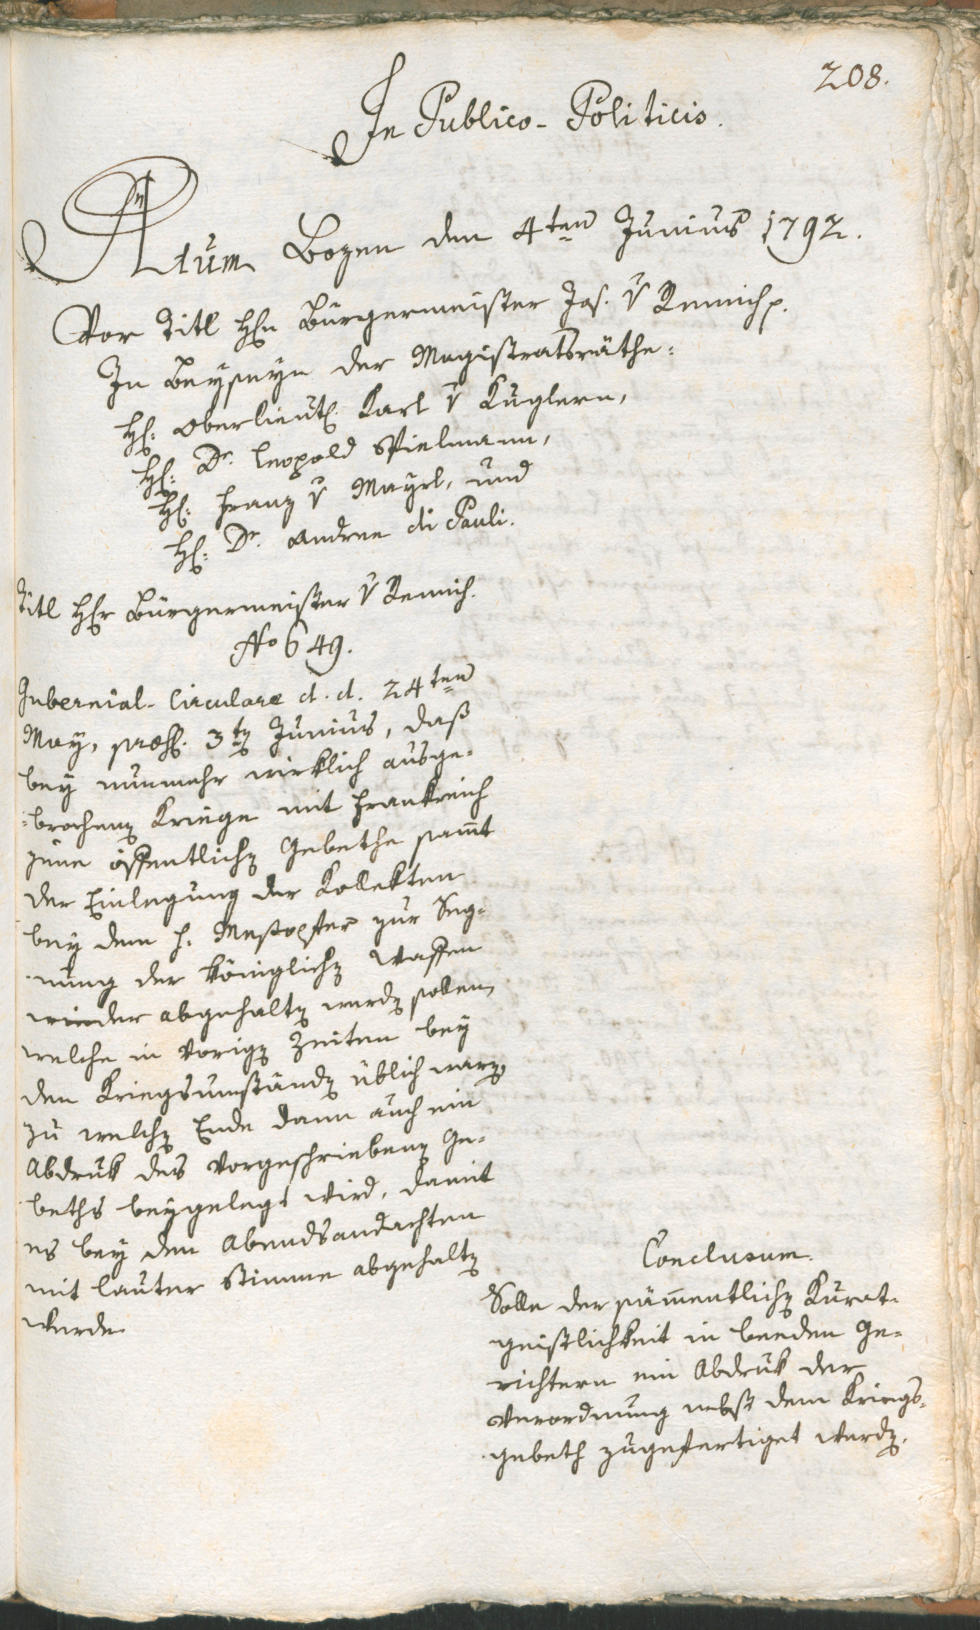 208.
In Publico-Politicis.
Actum Bozen den 4ten Junius 1792.
Vor Titl Hhn Bürgermeister Jos. v Remich p.
In Beyseyn der Magistratsräthe:
H: Oberlieut. Karl v Kuglern,
H: Dr. Leopold Spielmann,
H: Franz v Mayrl, und
H: Dr. Andree di Pauli.
Titl Hhr Bürgermeister v Remich.
No 649.
Gubernial-Circulare d. d. 24ten
May, præs. 3t Junius, daß
bey nunmehr wirklich ausge-
-brochen Kriege mit Frankreich
jene öffentlich Gebethe samt
der Einlegung der Kollekten
bey dem h. Mesopfer zur Seg-
nung der königlich Waffen
wieder abgehalten werden sollen,
welche in vorigen Zeiten bey
den Kriegsumständen üblich waren,
zu welchen Ende dann auch ein
Abdruk des vorgeschriebenen Ge-
beths beygelegt wird, damit
es bey den Abendsandachten
mit lauter Stimme abgehalten
werde.
Conclusum.
Solle der sämentlichen Kurat-
geistlichkeit in beeden Ge-
richtern ein Abdruk der
Verordnung nebst dem Kriegs-
gebeth zugefertiget werden.